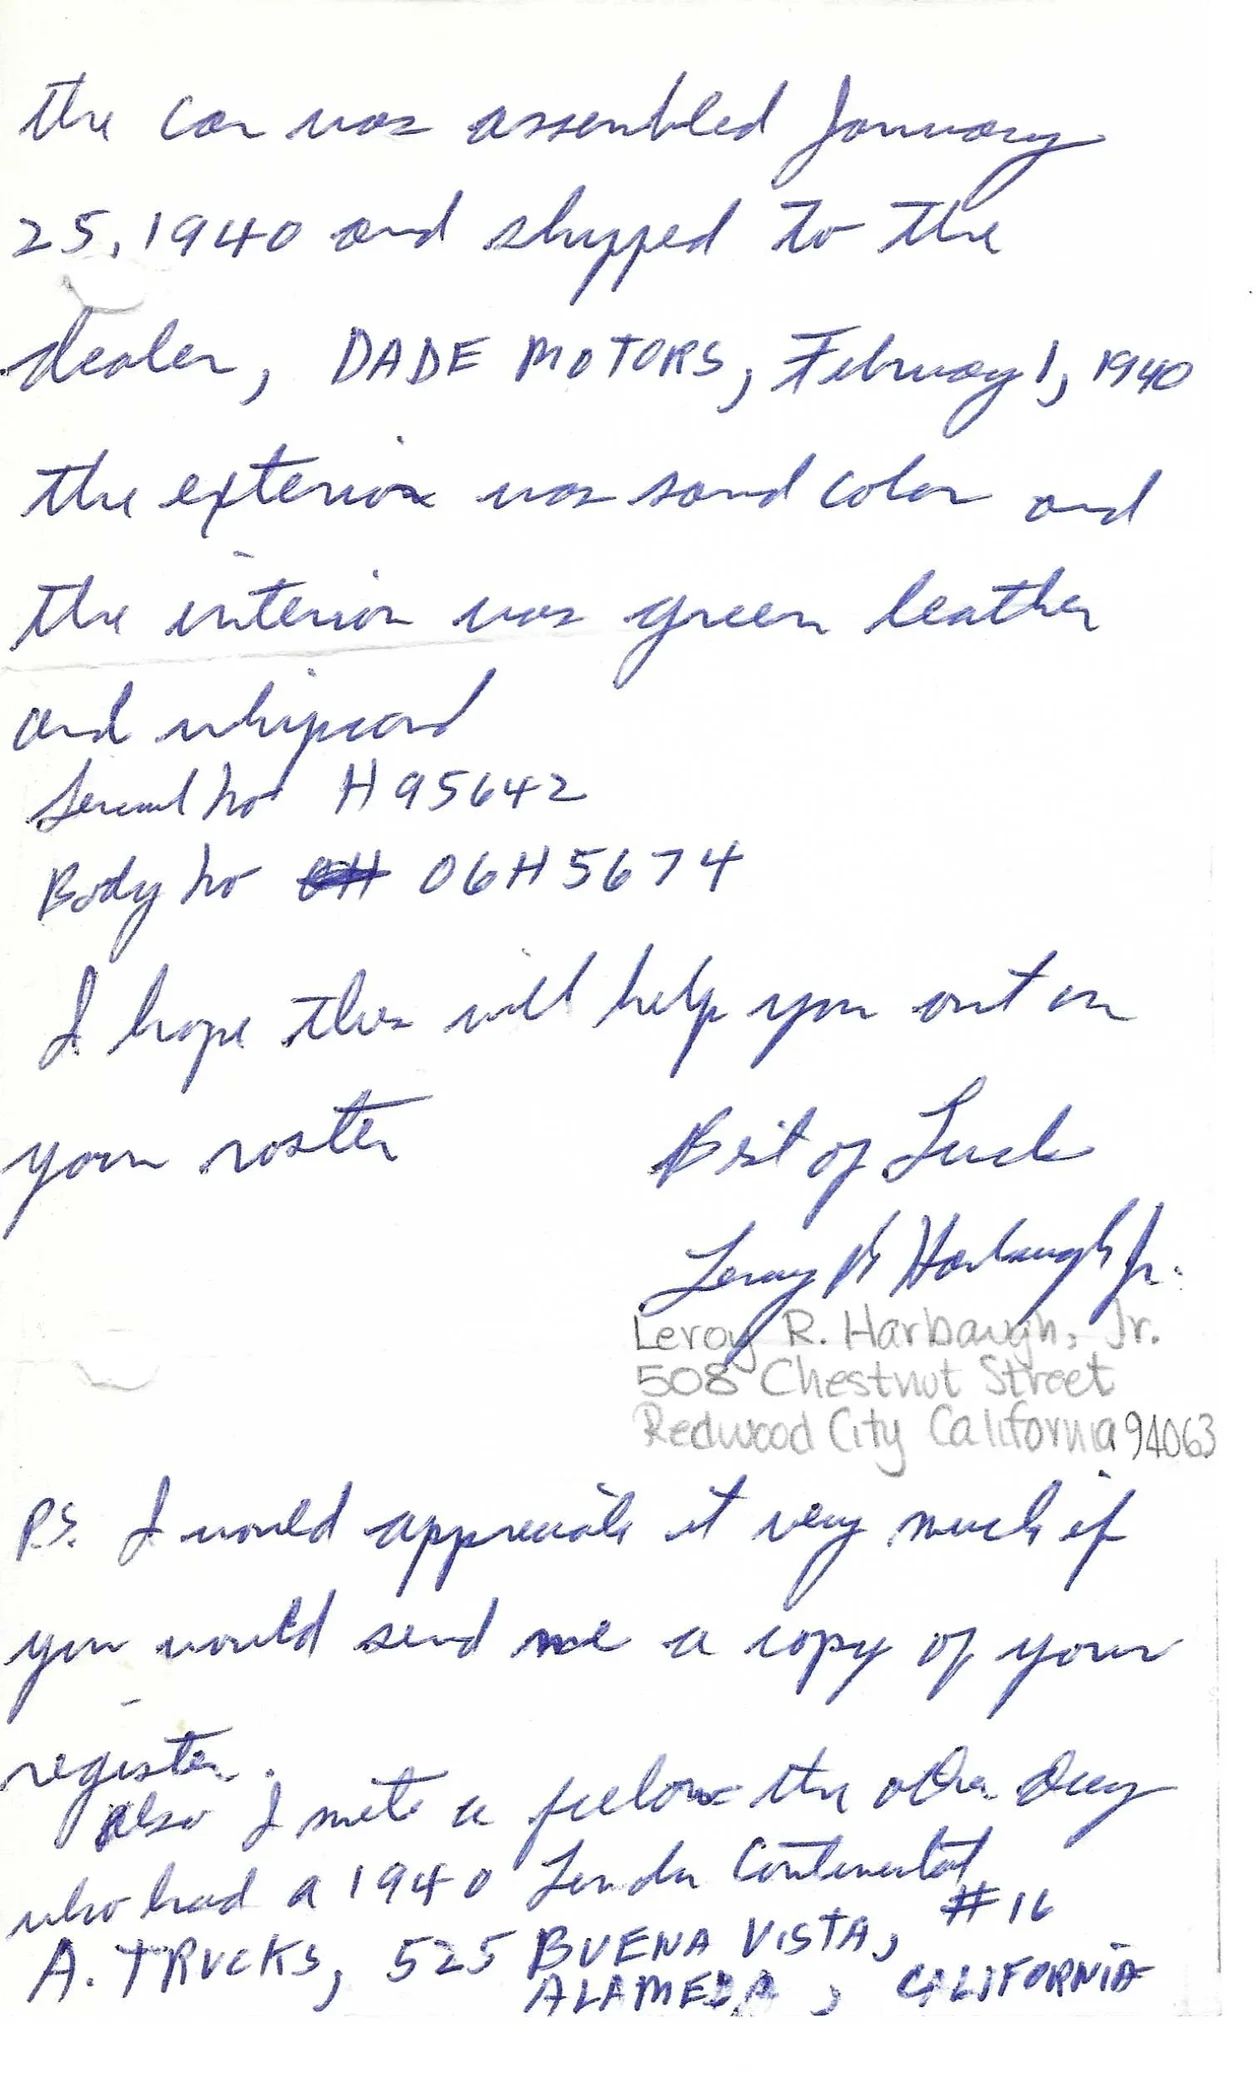 the car was assembled January
25, 1940 and shipped to the
dealer, DADE MOTORS, February 1, 1940
the exterior was sand color and
the interior was green leather
and whipcord
Serial no H95642
Body no 06H5674
I hope this will help you out on
your roster
Best of Luck
Leroy R Harbaugh Jr.
Leroy R. Harbaugh, Jr.
508 Chestnut Street
Redwood City California 94063
P.S. I would appreciate it very much if
you would send me a copy of your
register.
Also I mete a fellow the other day
who had a 1940 Continental
#16
A. TRUCKS, 525 BUENA VISTA,
ALAMEDA, CALIFORNIA